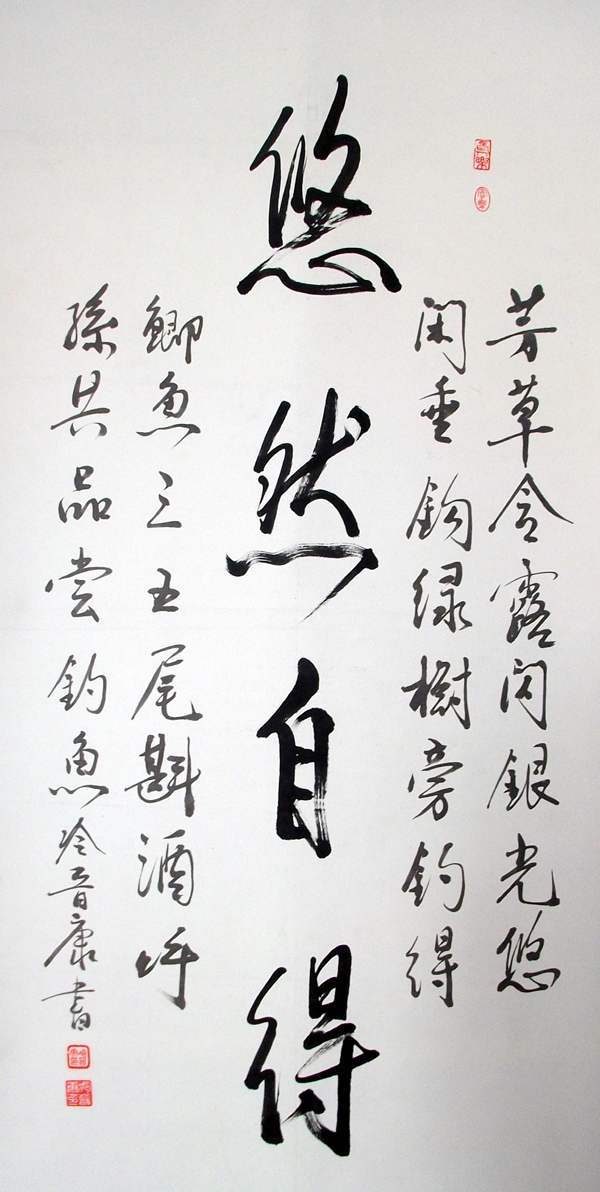 芳草含露闪銀光悠
闲垂鈎绿樹旁釣得
悠然自得
鯽魚三五尾斟酒呼
孫共品尝釣魚冷康書